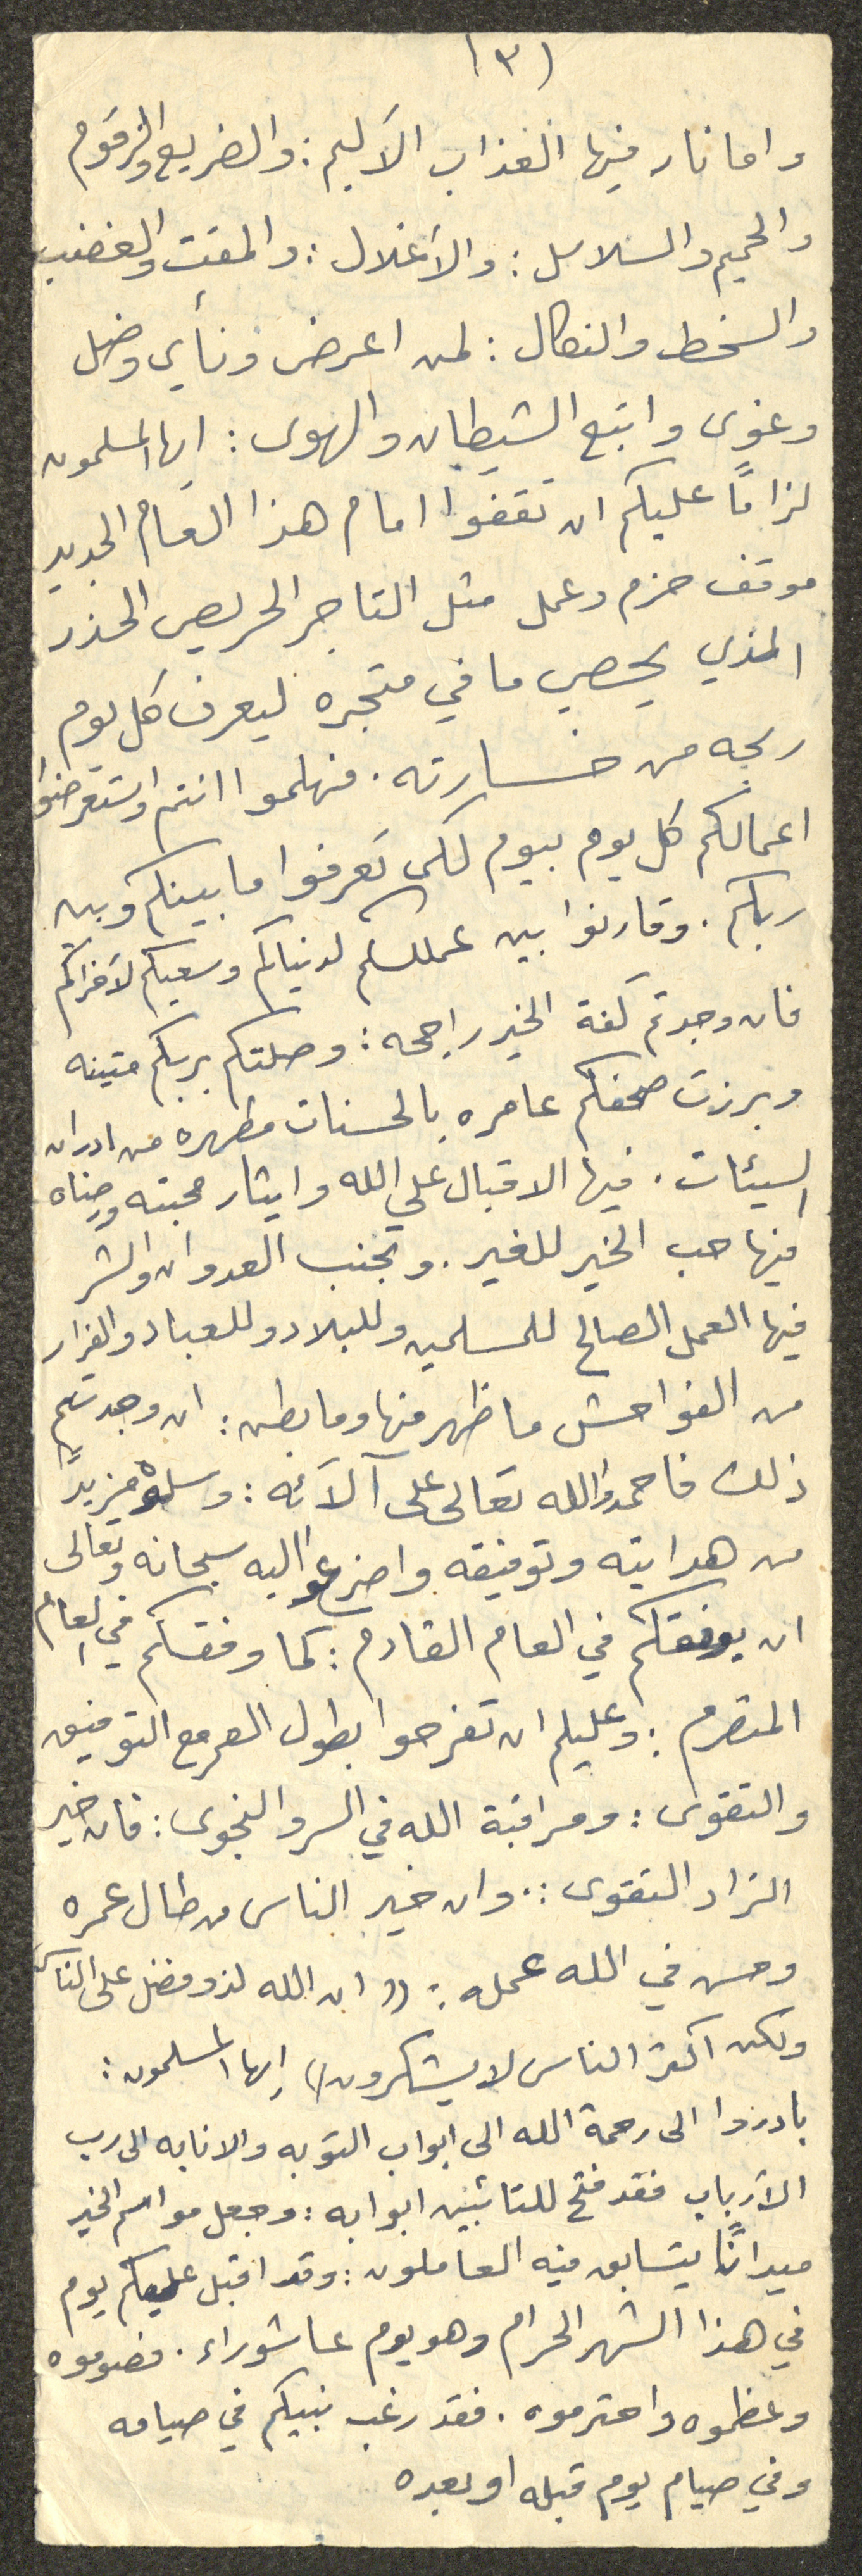 (٣)
واما نار فيها العذاب الأليم : والضريع والزقوم
والحميم والسلاسل : والأغلال : والمقت والغضب
والسخط والنكال : لمن اعرض ونأى وضل
وغوى واتبع الشيطان والهوى : ايها المسلمون
لزاماً عليكم ان تقفوا امام هذا العام الجديد
موقف حزم وعمل مثل التاجر الحريص الحذر
الذي يحصي ما في متجره ليعرف كل يوم
ربحه من خسارته . فهلموا انتم واستعرضوا
اعمالكم كل يوم بيوم لكى تعرفوا ما بينكم وبين
ربكم . وقارنوا بين عملكم لدنياكم وسعيكم لأخراكم
فان وجدتم كفة الخير راجحه : وصلتكم بربكم متينه
وبرزت صحفكم عامره بالحسنات مطهره من ادران
السيئات . فيها الاقبال على الله وايثار محبته ورضاه
فيها حب الخير للغير . وتجنب العدوان والشر
فيها العمل الصالح للمسلمين وللبلاد وللعباد والفرار
من الفواحش ما ظهر منها وما بطن : ان وجدتم
ذلك فاحمدوا الله تعالى على آلآئه : وسلوه مزيداً
من هدايته وتوفيقه واضرعوا اليه سبحانه وتعالى
ان يوفقكم في العام القادم : كما وفقكم في العام
المنصرم : وعليكم ان تفرحوا بطول العمر مع التوفيق
والتقوى : ومراقبة الله في السر والنجوى : فان خير
الزاد التقوى : . وان خير الناس من طال عمره
وحسن في الله عمله : (( ان الله لذو فضل على الناس
ولكن اكثر الناس لا يشكرون )) ايها المسلمون :
بادروا الى رحمة الله الى ابواب التوبه والانابه الى رب
الأرباب فقد فتح للتائبين ابوابه : وجعل مواسم الخير
ميداناً يتسابق فيه العاملون : وقد اقبل عليكم يوم
في هذا الشهر الحرام وهو يوم عاشوراء . فصوموه
وعظموه واحترموه . فقد رغب نبيكم في صيامه
وفي صيام يوم قبله او بعده